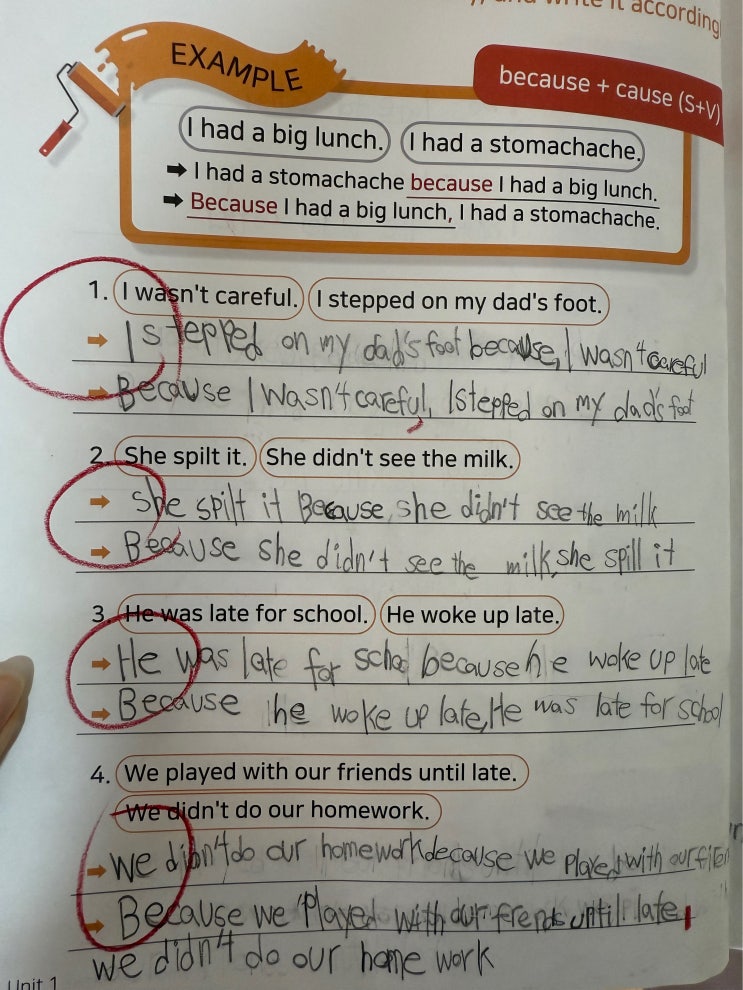 and write it according
EXAMPLE
because + cause (S+V)
I had a big lunch. I had a stomachache.
➡ I had a stomachache because I had a big lunch.
➡ Because I had a big lunch, I had a stomachache.
1. I wasn't careful. I stepped on my dad's foot.
➡ I stepped on my dad's foot because, I wasn't careful
➡ Because I wasn't careful, I stepped on my dad's foot
2. She spilt it. She didn't see the milk.
➡ She spilt it Because, she didn't see the milk
➡ Because she didn't see the milk, she spill it
3. He was late for school. He woke up late.
➡ He was late for schoo because he woke up late
➡ Because he woke up late, He was late for school
4. We played with our friends until late.
We didn't do our homework.
➡ We dibn't do our homework decause we played with our
➡ Because we played with our frends until late,
we didn't do our home work
Unit 1